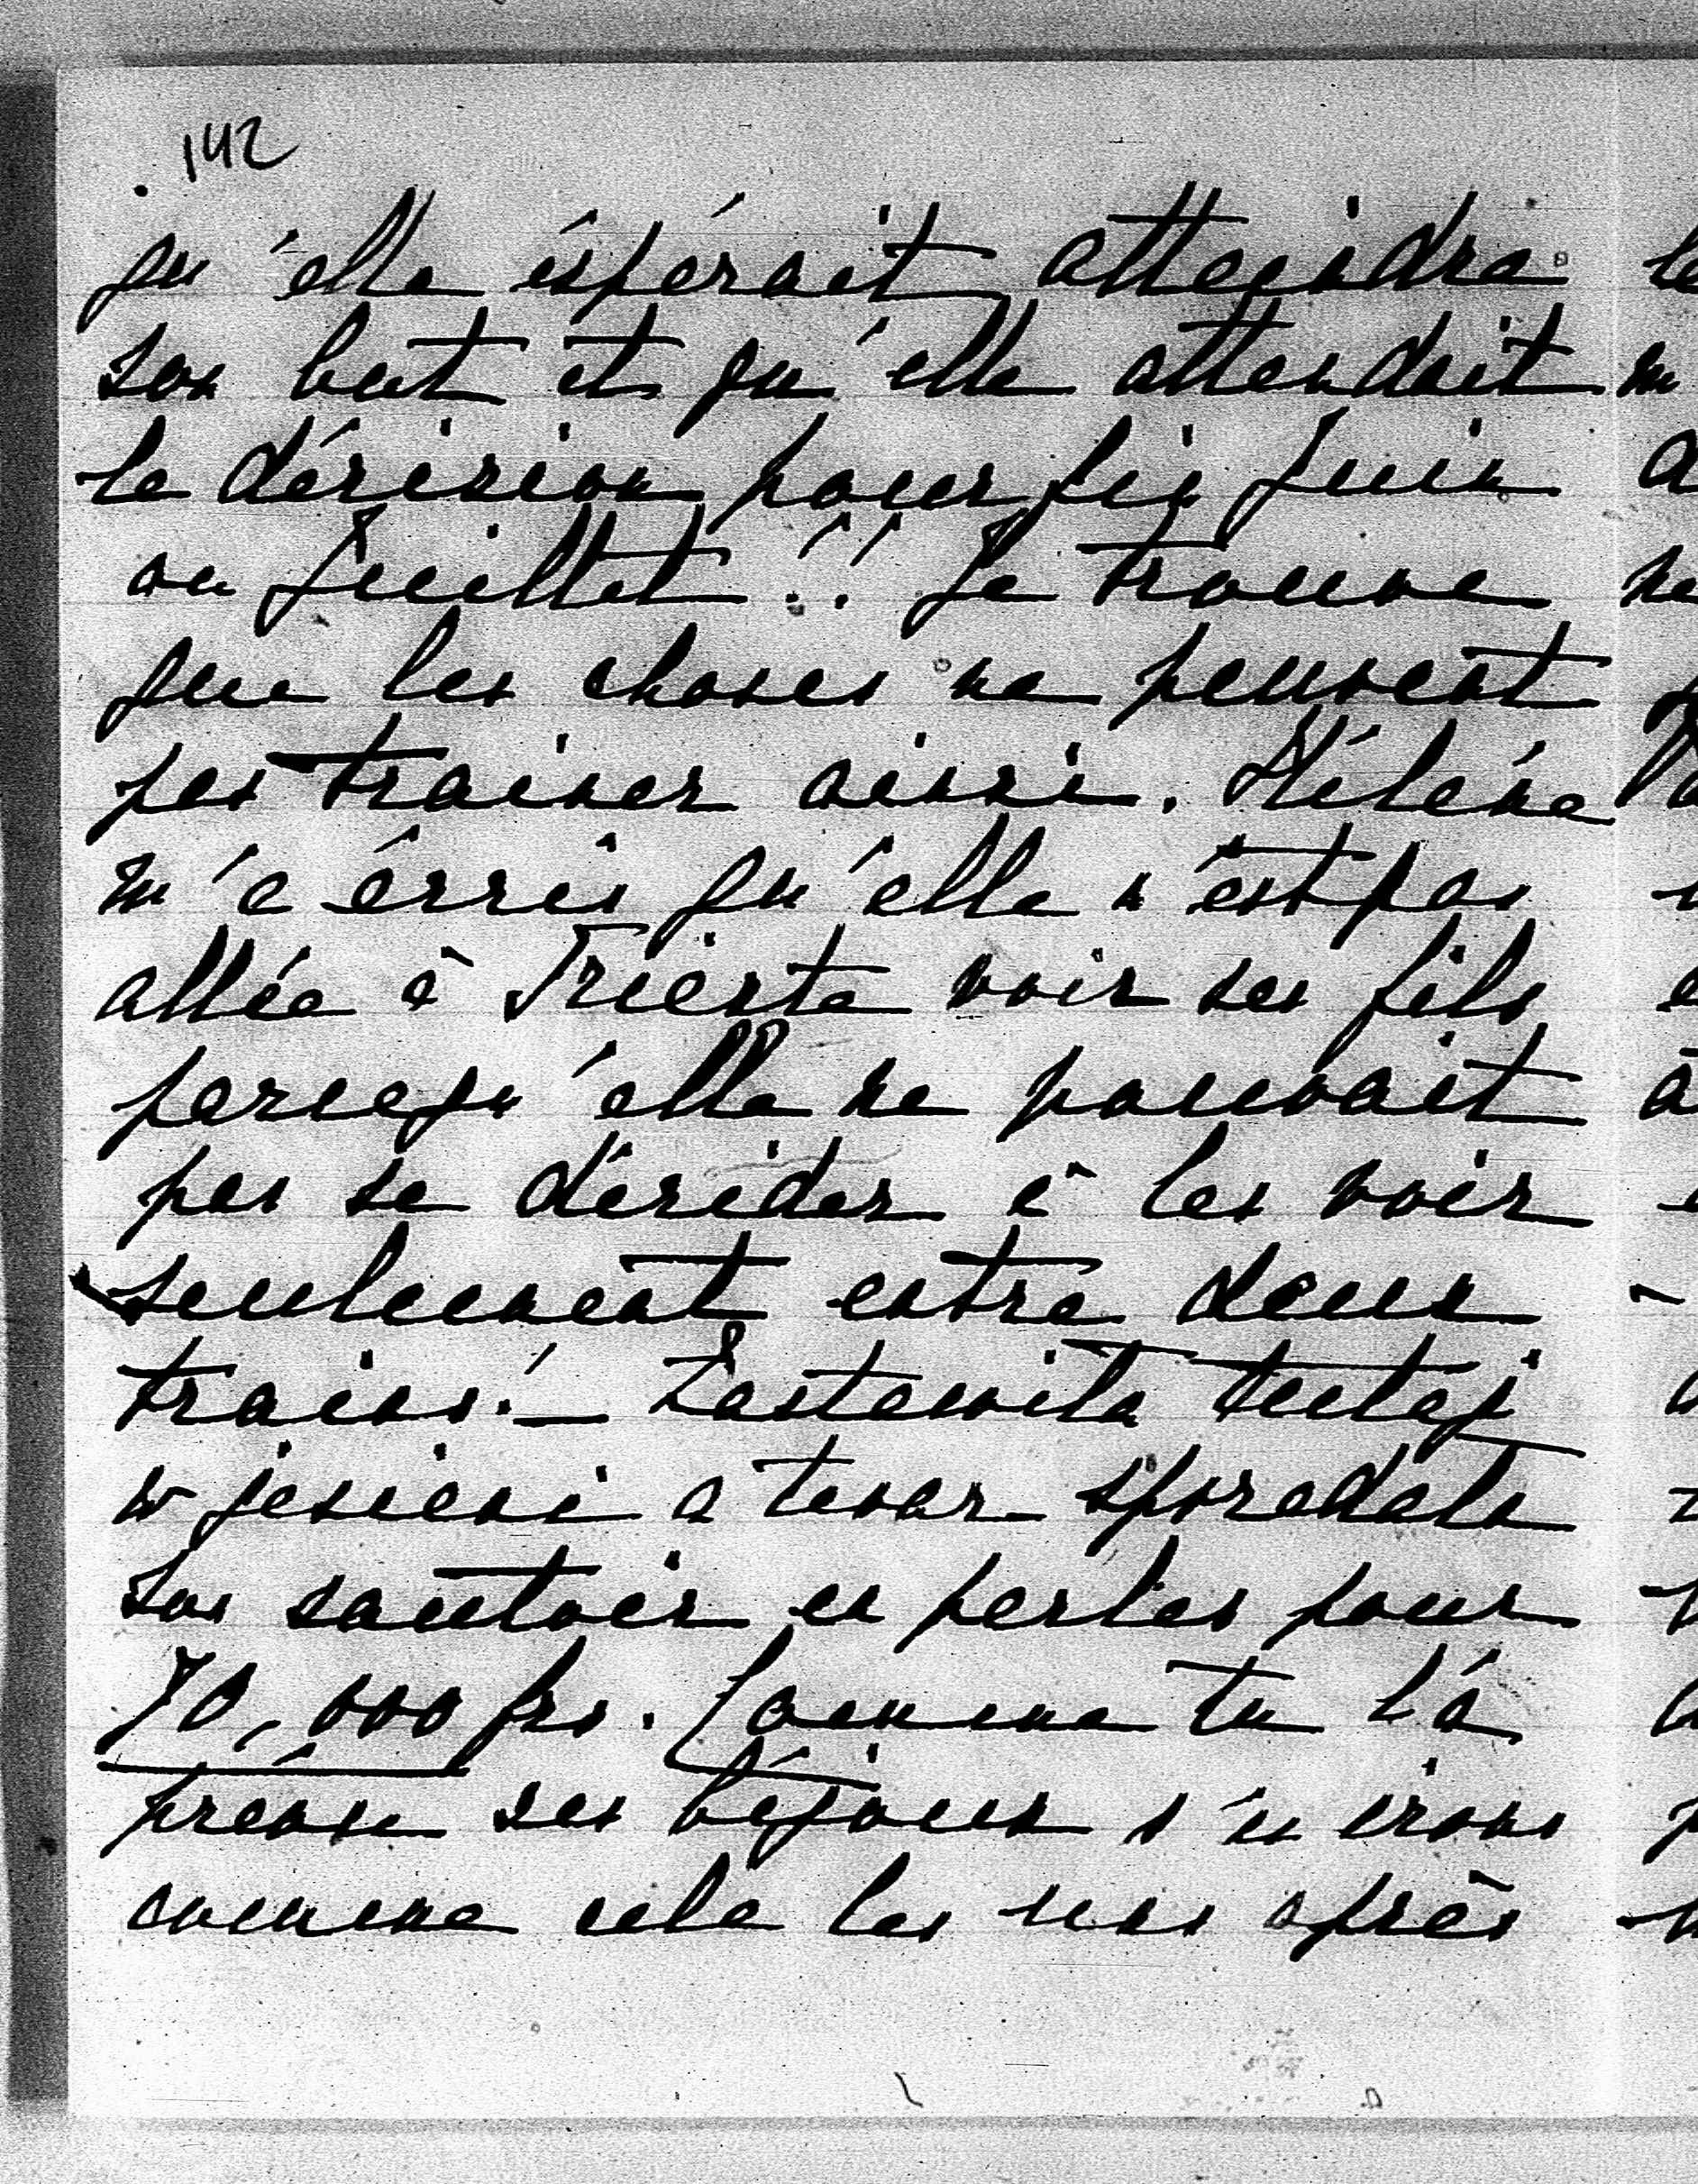 142
qu'elle éspérait atteindre
son but et qu'elle attendait
la décision pour fin Juin
ou Juillet!! Je trouve
que les choses ne peuvent
pas trainer ainsi. Hélène
m'a écris qu'elle n'est pas
allée à Trieste voir ses fils
parcequ'elle ne pouvait
pas se décider à les voir
seulement entre deux
trains!— Zastawiła tutaj
w jesieni a teraz sprzedała
son sautoir en perles pour
70,000 frs. Comme tu l'a
prévu ses béjoux s'en irons
comme cela les uns après